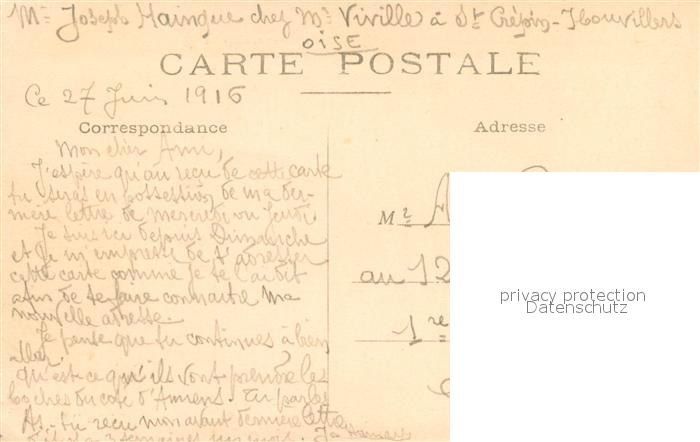 Mr Joseph Hainque chez Mr Viville à St Crépin-Ibouvillers
OISE
CARTE POSTALE
Ce 27 Juin 1916
Correspondance
Adresse
Mon cher Ami,
J'espère qu'au reçu de cette carte
tu seras en possession de ma der-
nière lettre de mercredi ou Jeudi
Je suis ici depuis Dimanche
et Je m'empresse de t'adresser
cette carte comme je te l'ai dit
afin de te faire connaitre ma
nouvelle adresse.
Je pense que tu continues à bien
aller.
qu'est-ce qu'ils vont prendre les
boches du coté d'Amiens. tu parles
As-tu reçu mon avant dernière lettre
semaines
Mr A
au 12
1re
privacy protection
Datenschutz